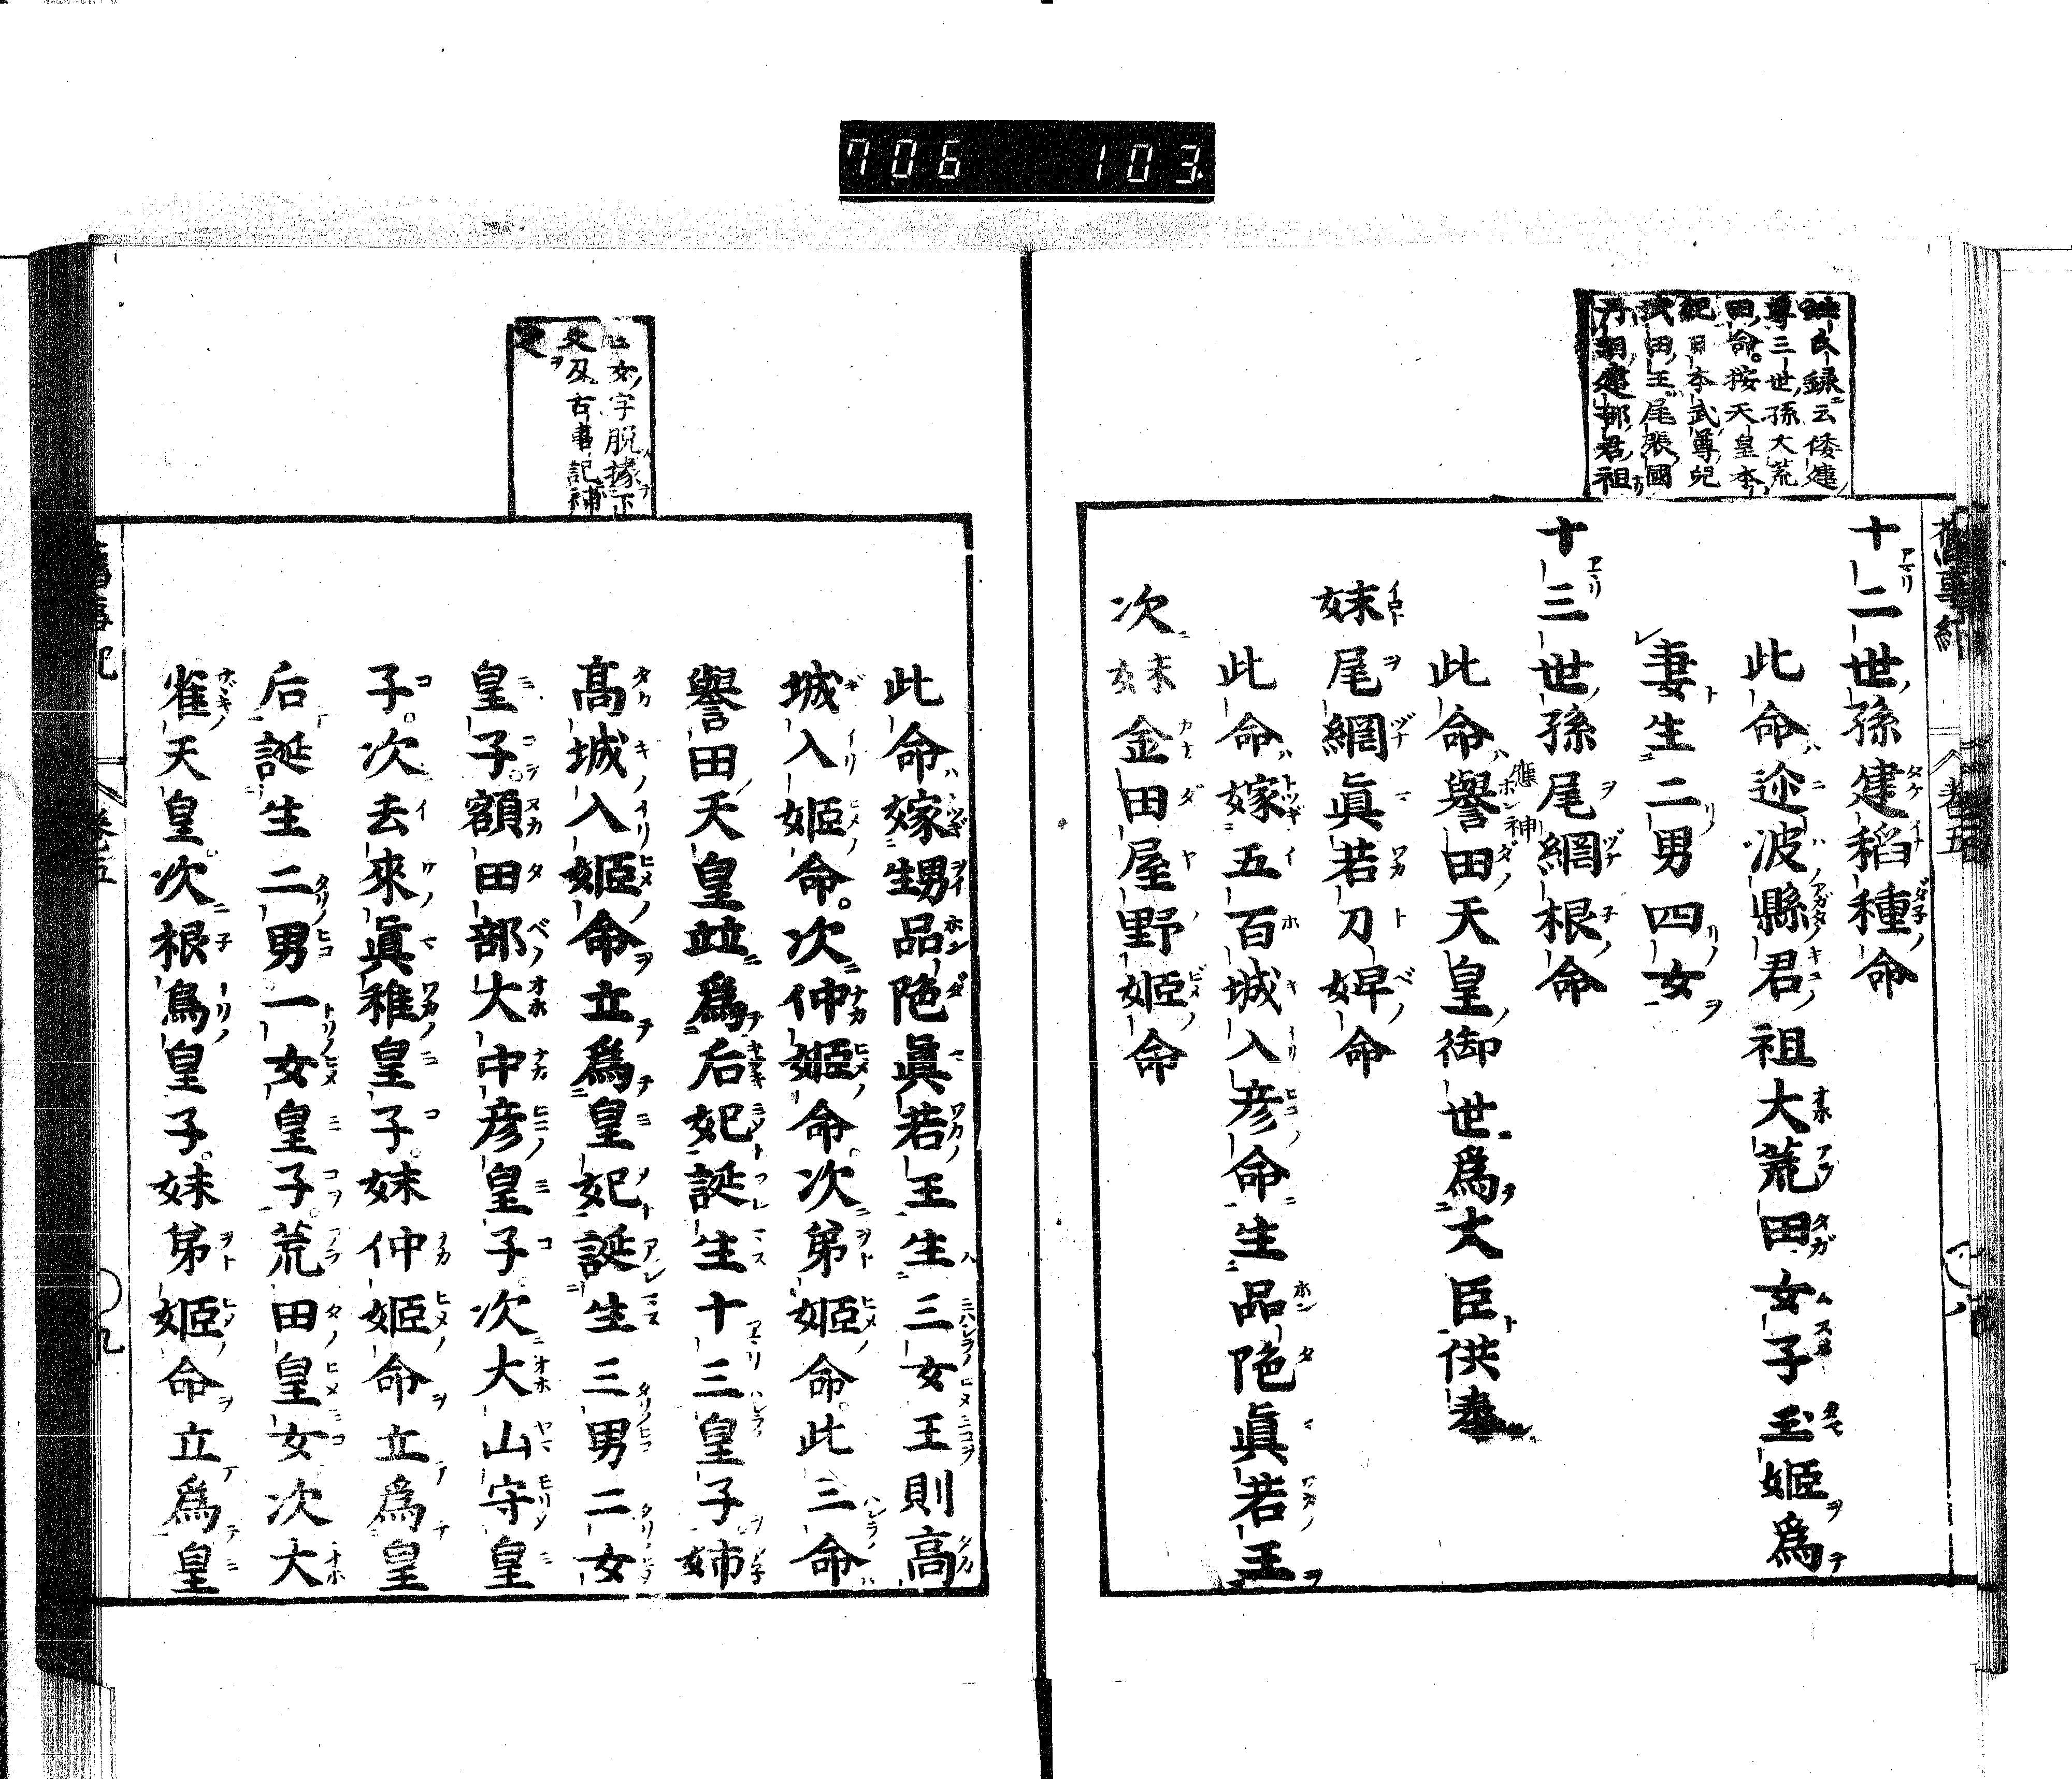 706 103
姓氏録云倭建
尊三世孫大荒
田命按天皇本
紀日本武尊兒
武田王尾張國
丹羽建部君祖
舊事紀 卷五
十二世孫建稻種命
此命迩波縣君祖大荒田女子玉姬爲
妻生二男四女
十三世孫尾綱根命
此命譽田天皇御世爲大臣供奉
應神
妹尾綱眞若刀婢命
此命嫁五百城入彦命生品陁眞若王
次妹金田屋野姬命
二女字脱據下
文及古事記補
之
此命嫁甥品陁眞若王生三女王則高
城入姬命次仲姬命次弟姬命此三命
譽田天皇並爲后妃誕生十三皇子姉
高城入姬命立爲皇妃誕生三男二女
皇子額田部大中彦皇子次大山守皇
子次去來眞稚皇子妹仲姬命立爲皇
后誕生二男一女皇子荒田皇女次大
雀天皇次根鳥皇子妹弟姬命立爲皇
舊事紀 卷五 九